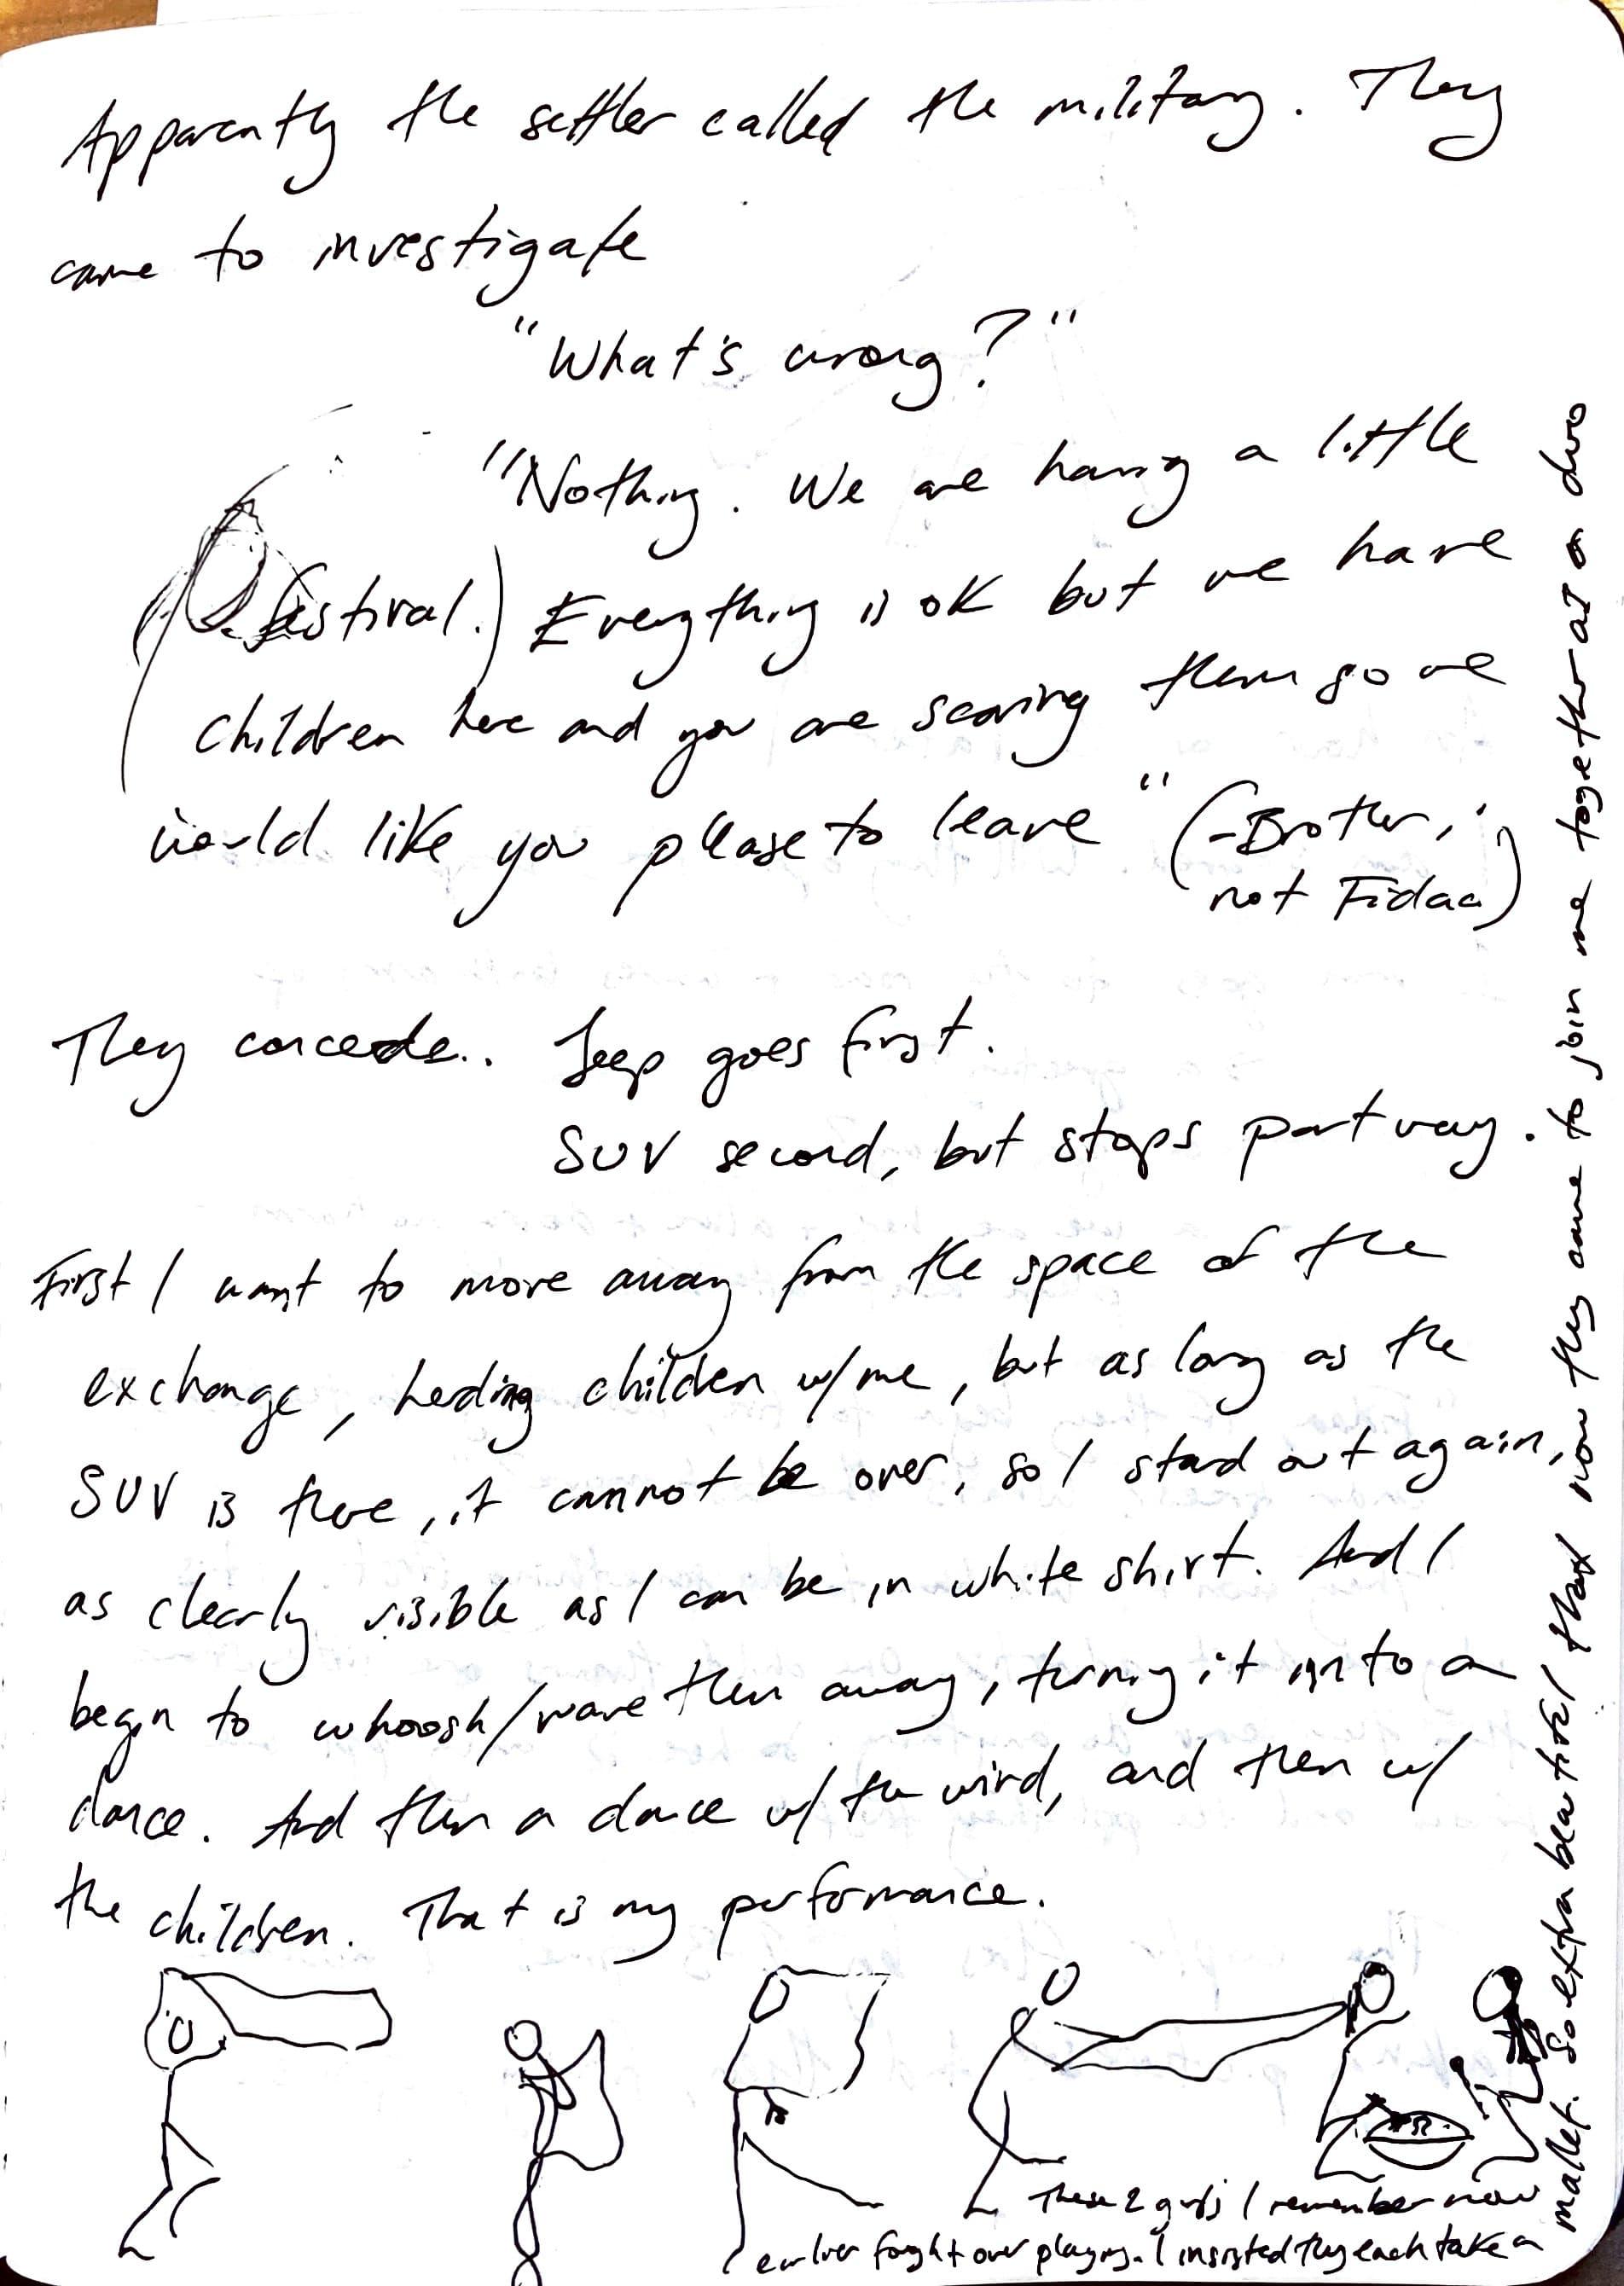 Apparently the settler called the military. They
came to investigate
"What's wrong?"
"Nothing. We are having a little
festival.) Everything is OK but we have
children here and you are scaring them so we
would like you please to leave" (-Brother,
not Fidaa)
They concede.. Jeep goes first.
SUV second, but stops part way.
First I want to move away from the space of the
exchange, herding children w/me, but as long as the
SUV is there, it cannot be over, so I stand out again,
as clearly visible as I can be in white shirt. And I
begin to whoosh/wave them away, turning it into a
dance. And then a dance w/ the wind, and then w/
the children. That is my performance.
These 2 girls I remember now
earlier fought over playing. I insisted they each take a
mallet. So extra beautiful that now they came to join me together as a duo